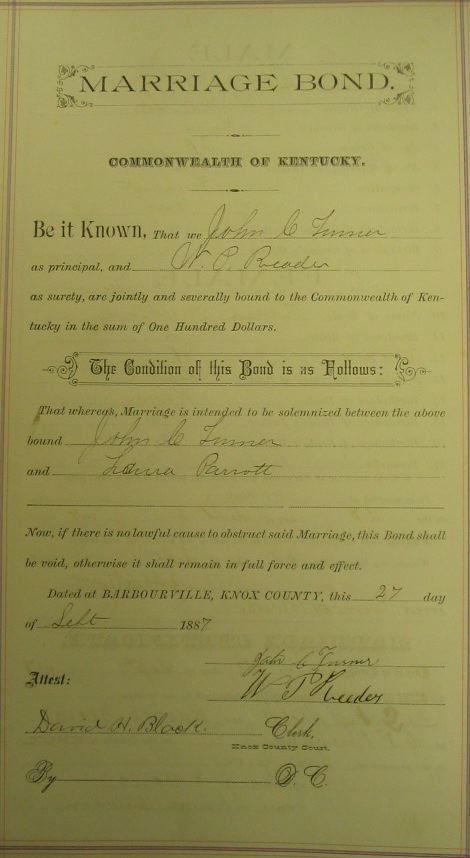 MARRIAGE BOND.
COMMONWEALTH OF KENTUCKY.
Be it Known, That we John C Turner
as principal, and W. P. Reader
as surety, are jointly and severally bound to the Commonwealth of Ken-
tucky in the sum of One Hundred Dollars.
The Condition of this Bond is as Follows:
That whereas, Marriage is intended to be solemnized between the above
bound John C Turner
and Laura Parrott
Now, if there is no lawful cause to obstruct said Marriage, this Bond shall
be void, otherwise it shall remain in full force and effect.
Dated at BARBOURVILLE, KNOX COUNTY, this 27 day
of Sept 1887
John C Turner
Attest: W P Reeder
David H. Black. Clerk,
Knox County Court.
By D. C.